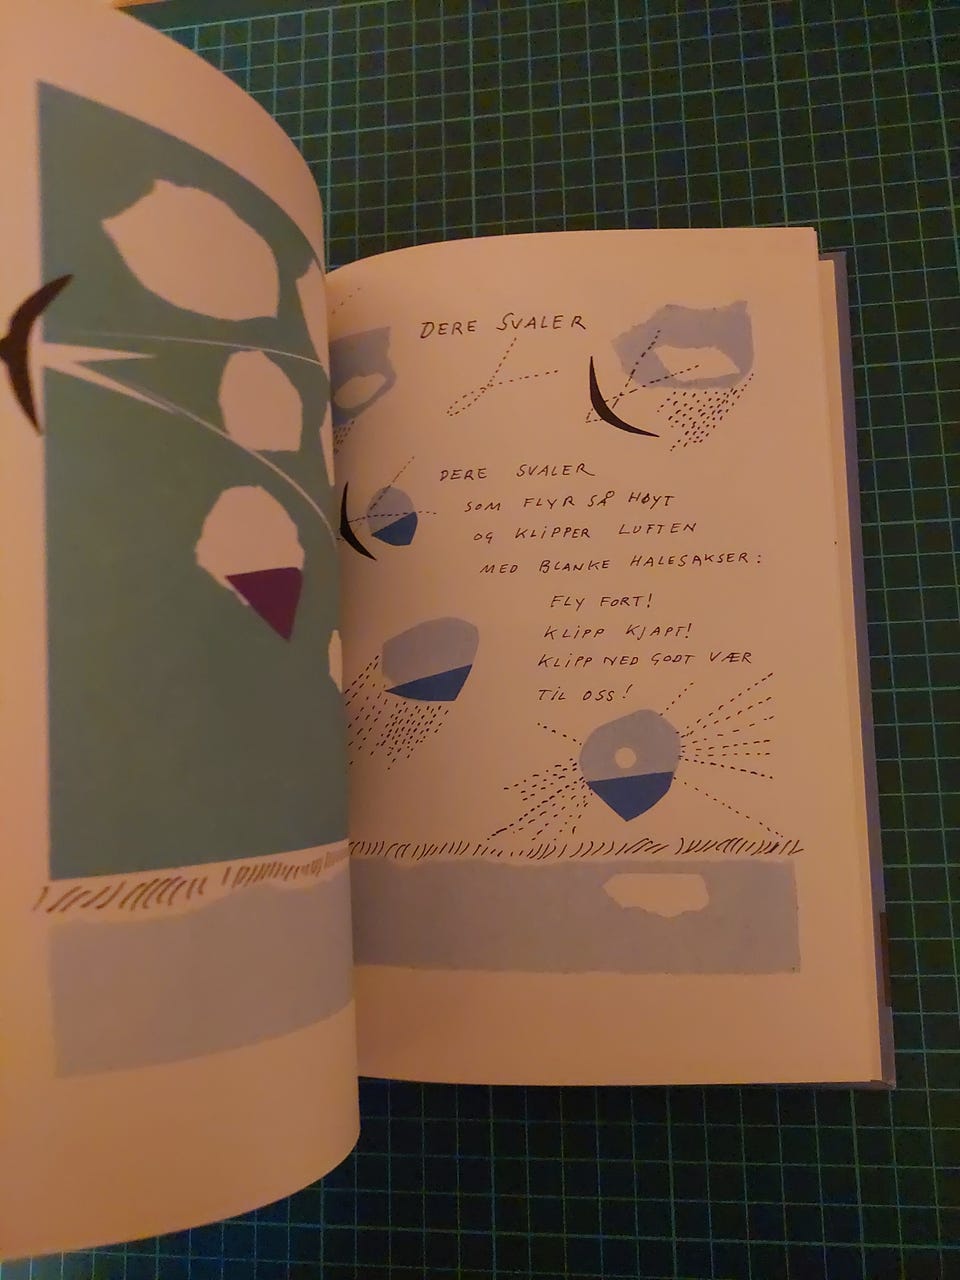 DERE SVALER
DERE SVALER
SOM FLYR SÅ HØYT
OG KLIPPER LUFTEN
MED BLANKE HALESAKSER:
FLY FORT!
KLIPP KJAPT!
KLIPP NED GODT VÆR
TIL OSS!